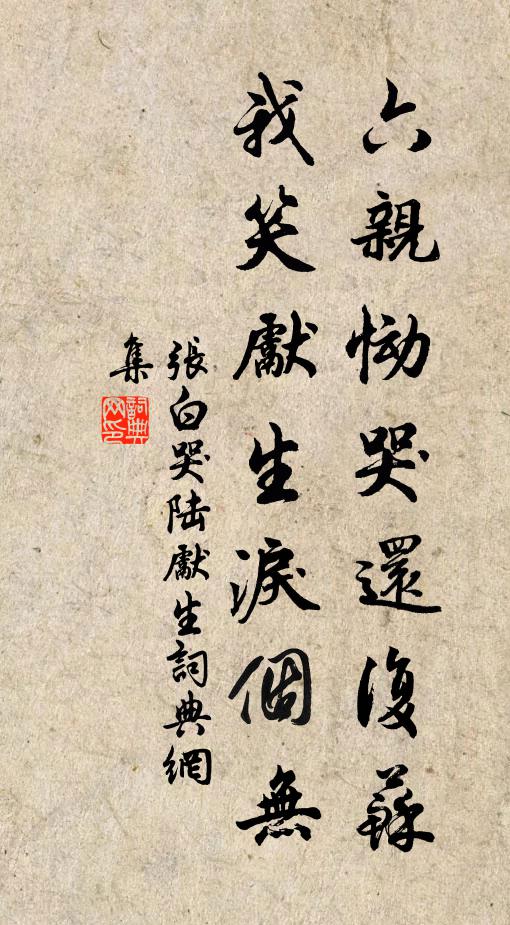 六親慟哭還復蘇
我笑獻生淚個無
張白哭陆獻生詞典網
集
詞典
网印